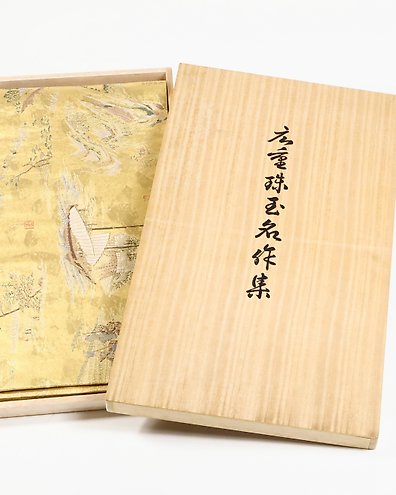 広重珠玉名作集